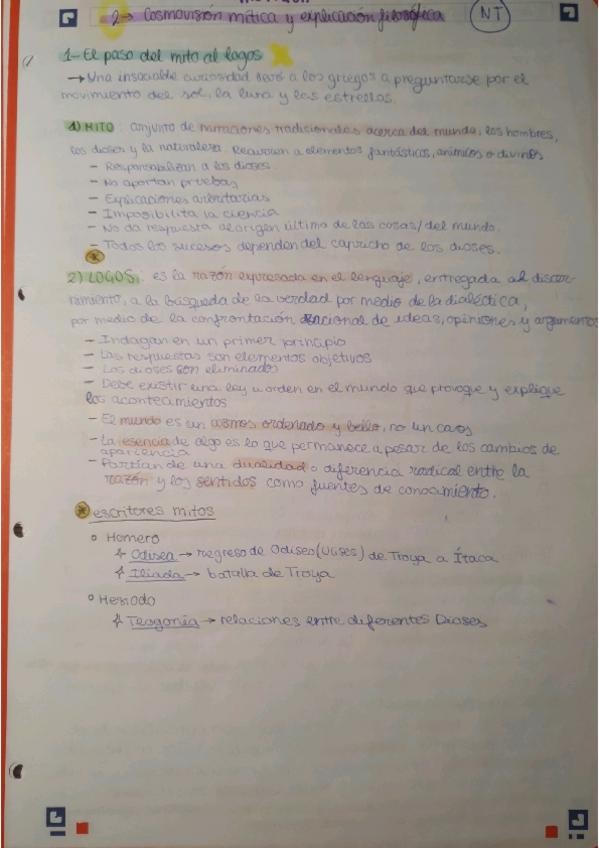 2→ Cosmovisión mítica y explicación filosófica
NT
1- El paso del mito al logos
→ Una insaciable curiosidad llevó a los griegos a preguntarse por el
movimiento del sol, la luna y las estrellas.
1) MITO: conjunto de narraciones tradicionales acerca del mundo, los hombres,
los dioses y la naturaleza. Recurren a elementos fantásticos, anímicos o divinos
- Responsabilizan a los dioses.
- No aportan pruebas
- Explicaciones arbitrarias
- Imposibilita la ciencia
- No da respuesta al origen último de las cosas/del mundo.
- Todos los sucesos dependen del capricho de los dioses.
*
2) LOGOS: es la razón expresada en el lenguaje, entregada al discer-
nimiento, a la búsqueda de la verdad por medio de la dialéctica,
por medio de la confrontación racional de ideas, opiniones y argumentos
- Indagan en un primer principio
- Las respuestas son elementos objetivos
- Los dioses son eliminados
- Debe existir una ley u orden en el mundo que provoque y explique
los acontecimientos
- El mundo es un cosmos ordenado y bello, no un caos
- La esencia de algo es lo que permanece a pesar de los cambios de
apariencia
- Partían de una dualidad o diferencia radical entre la
razón y los sentidos como fuentes de conocimiento.
* escritores mitos
Homero
Odisea → regreso de Odiseo (Ulises) de Troya a Ítaca
Ilíada → batalla de Troya
Hesíodo
Teogonía → relaciones entre diferentes Dioses